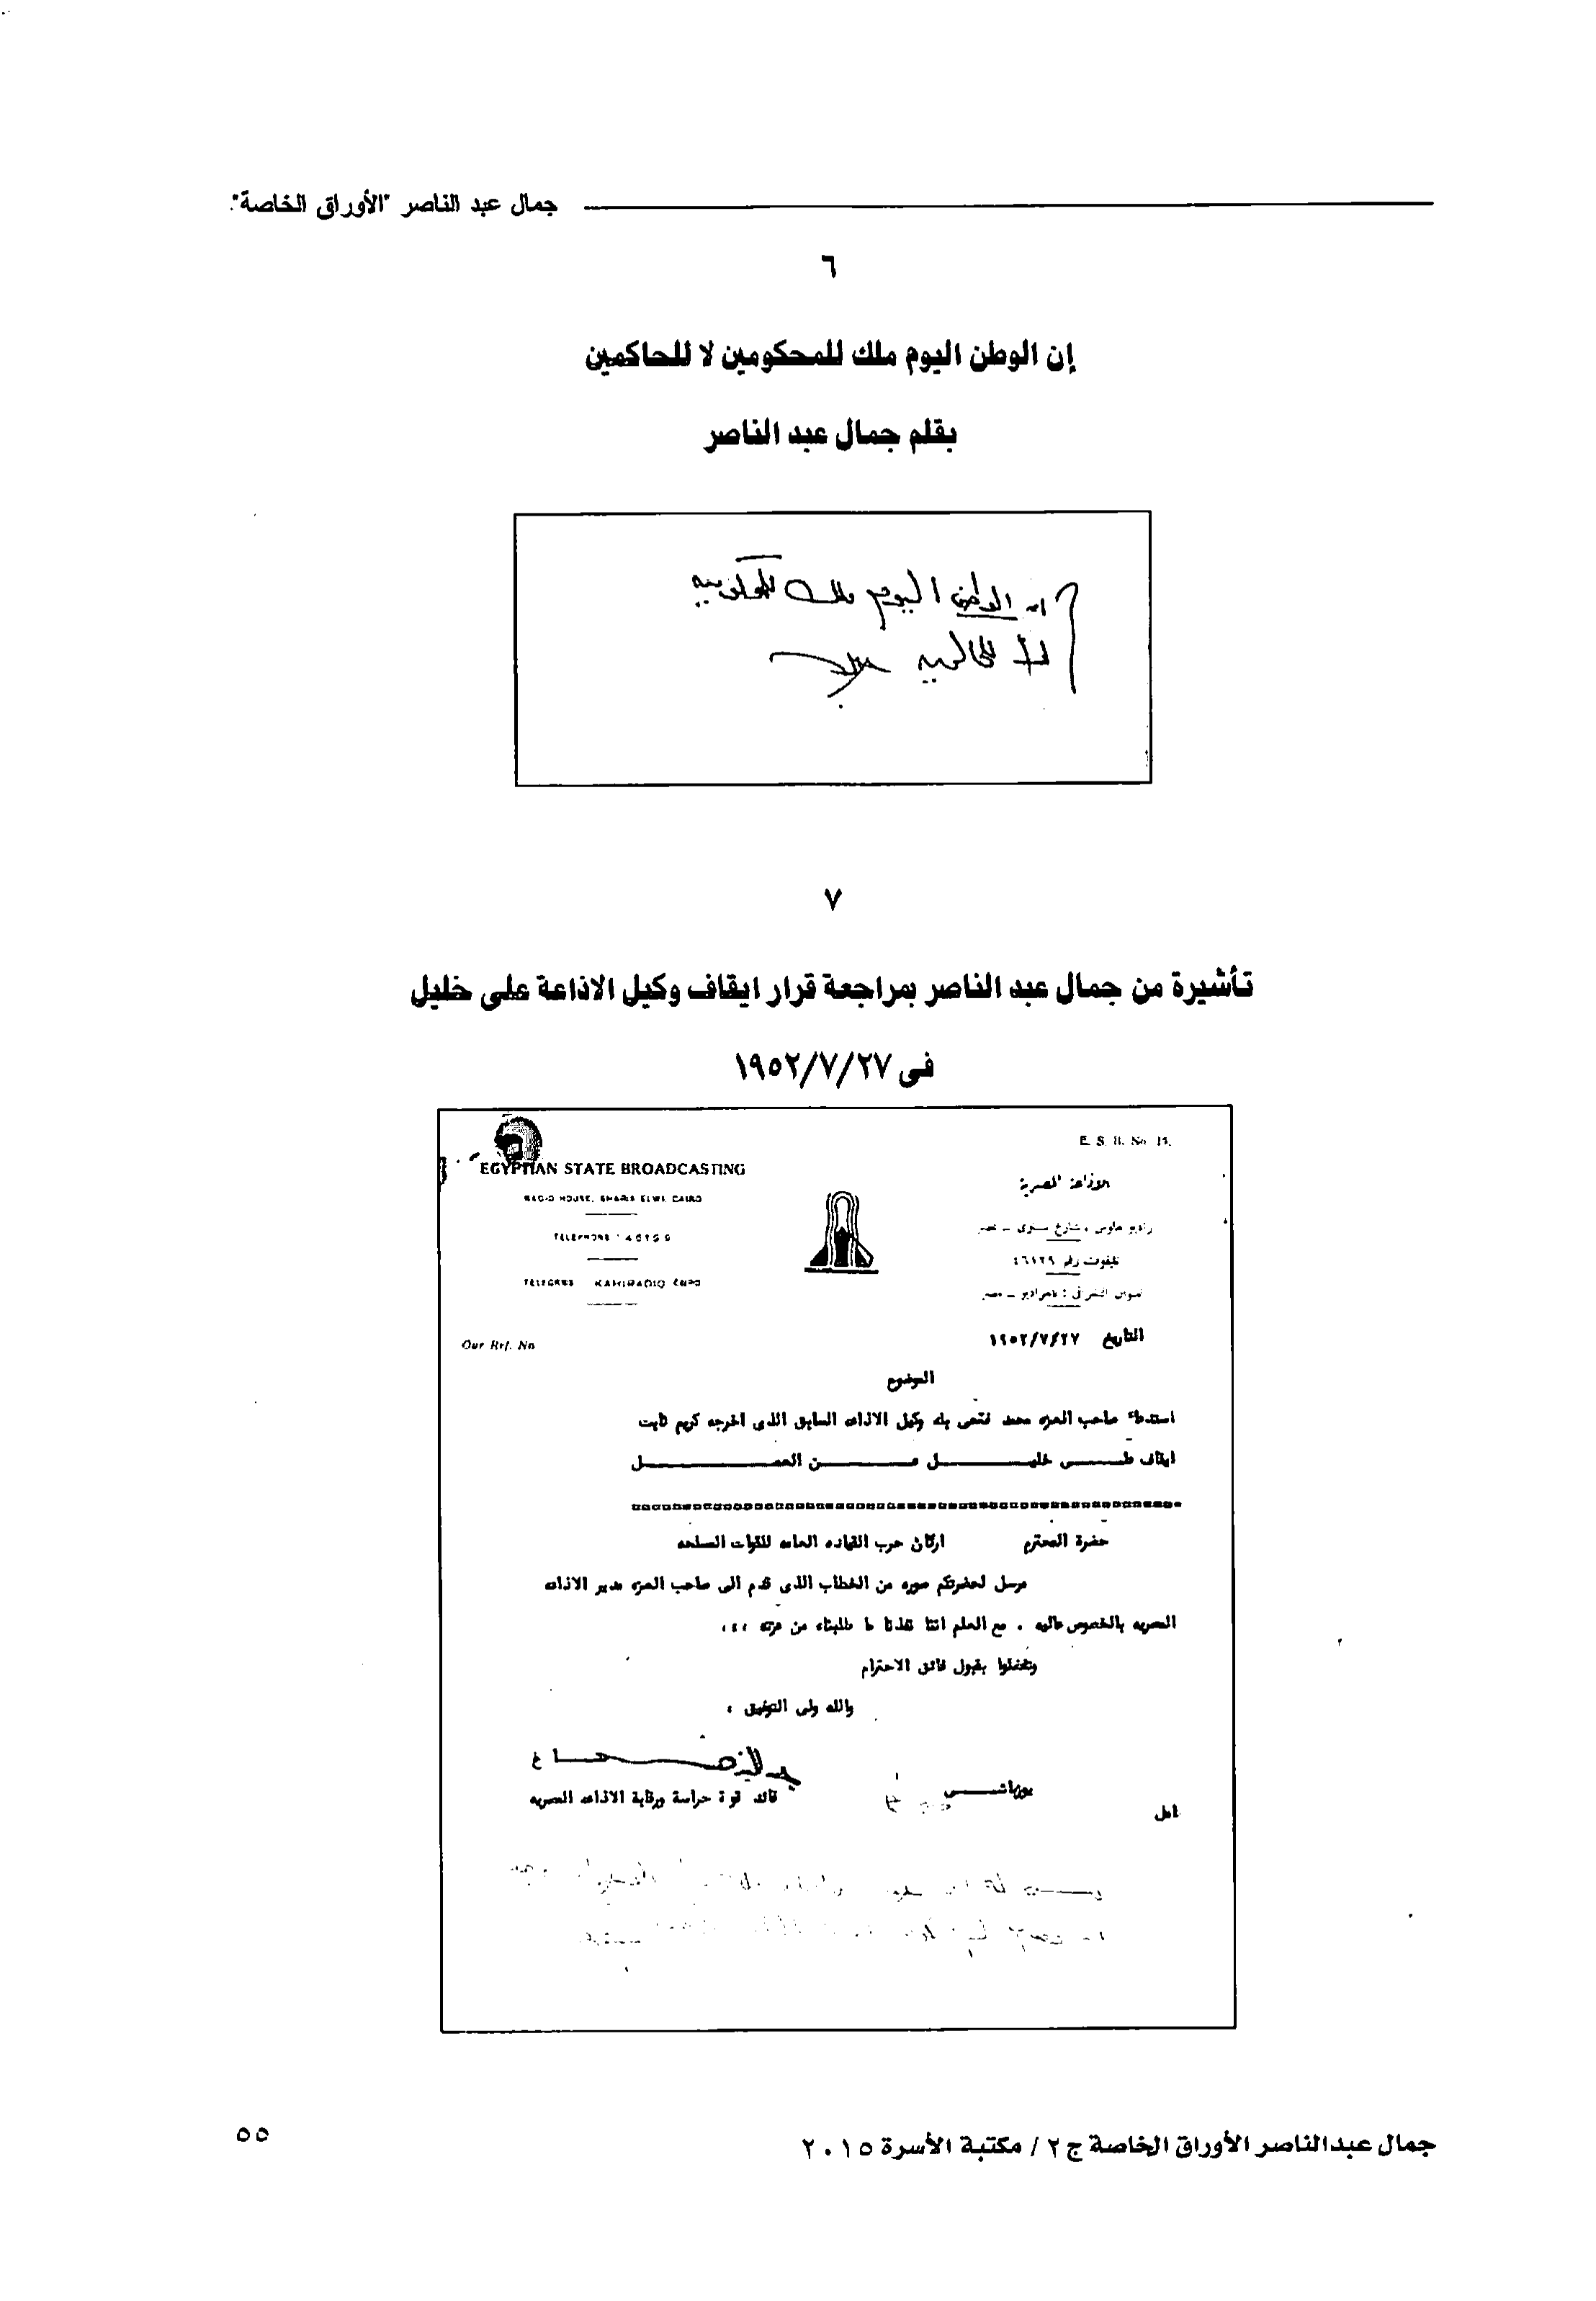 جمال عبد الناصر "الأوراق الخاصة".
٦
إن الوطن اليوم ملك للمحكومين لا للحاكمين
بقلم جمال عبد الناصر
ان الوطن اليوم ملك للمحكومين
لا للحاكمين
٧
تأشيرة من جمال عبد الناصر بمراجعة قرار ايقاف وكيل الاذاعة على خليل
فى ١٩٥٢/٧/٢٧
E. S. B. No
EGYPTIAN STATE BROADCASTING
الاذاعة المصرية
RADIO HOUSE, SHARIA ELWI, CAIRO
راديو هاوس ، شارع علوى – مصر
TELEPHONE
تليفون رقم
TELEGRMS KAHIRADIO CAIRO
التاريخ ١٩٥٢/٧/٢٧
Our Ref. No
الموضوع
استدعاء صاحب العزه محمد فتحى بك وكيل الاذاعه السابق الذى اخرجه كريم ثابت
ايقاف على خليل عن العمل
حضرة المحترم اركان حرب القياده العامه للقوات المسلحه
مرسل لحضرتكم صوره من الخطاب الذى قدم الى صاحب العزه مدير الاذاعه
المصريه بالخصوص عاليه . مع العلم اننا نفذنا ما طلبناه من عزته ،،،
وتفضلوا بقبول فائق الاحترام
والله ولى التوفيق ،
يوزباشى
قائد قوة حراسة ورقابة الاذاعه المصريه
جمال عبدالناصر الأوراق الخاصة ج٢ / مكتبة الأسرة ٢٠١٥
٥٥